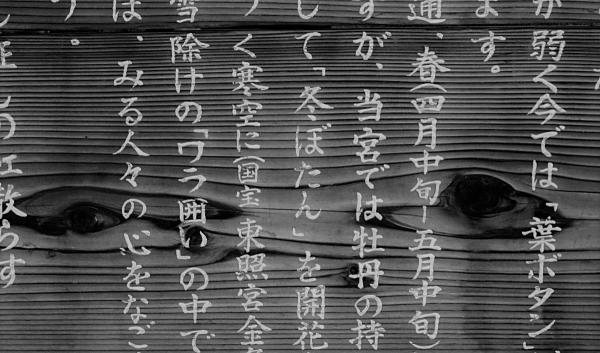 ます。
が弱く今では「葉ボタン」
通、春(四月中旬-五月中旬)
すが、当宮では牡丹の持
して「冬ぼたん」を開花
く寒空に(国宝東照宮金色
雪除けの「ワラ囲い」の中で
は、みる人々の心をなご
う。
正しの紅散らす